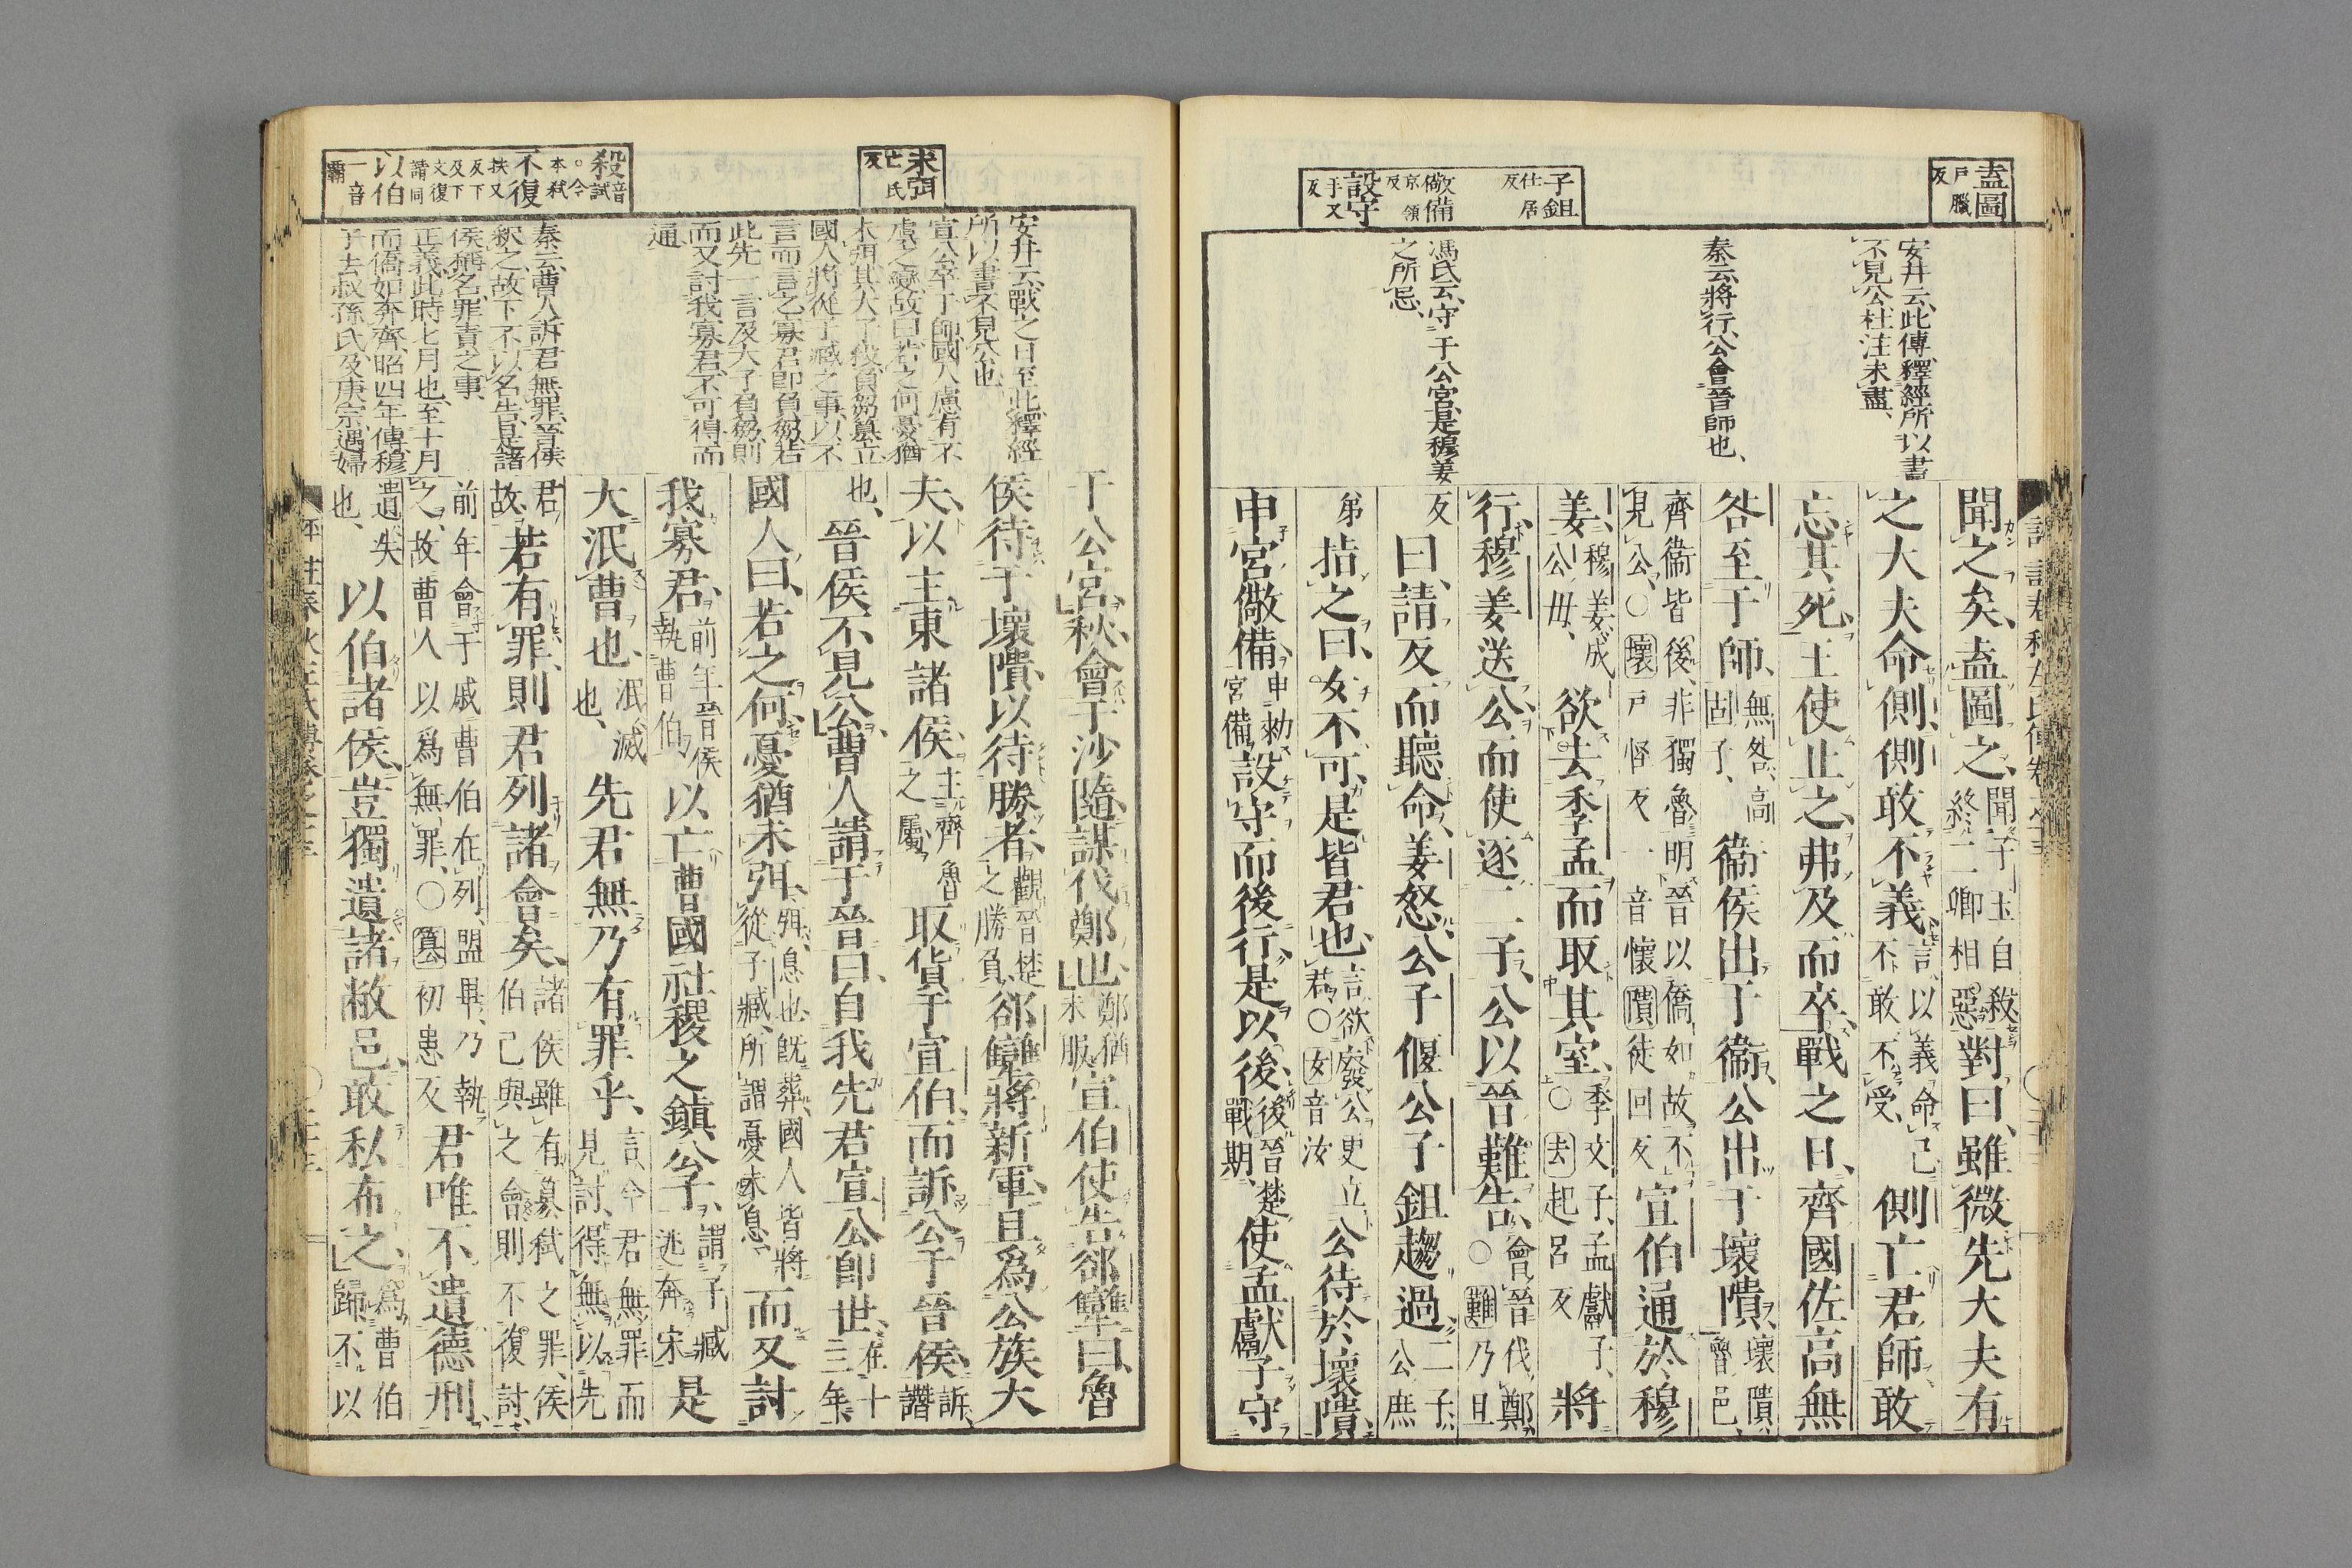 盍圖
戸臘
反
子鉏
仕居
反
儆備
京領
反
設守
手又
反
安井云、此傳釋經所以書
不見公、杜注未盡、
秦云、將行、公會晉師也、
馮氏云、守于公宮、是穆姜
之所忌、
聞之矣、盍圖之、聞子玉自殺終二卿相惡對曰、雖微先大夫有
之大夫命側、側敢不義、言以義命己不敢不受、側亡君師、敢
忘其死、王使止之、弗及而卒、戰之日、齊國佐高無
咎至于師、無咎、高固子、衞侯出于衞、公出于壞隤、壞隤魯邑、
齊衞皆後、非獨魯、明晉以僑如故、不見公、○壞戸怪反一音懷隤徒回反宣伯通於穆
姜、穆姜、成公母、欲去季孟而取其室、季文子、孟獻子、○去起呂反將
行、穆姜送公、而使逐二子、公以晉難告、會晉伐鄭○難乃旦
反曰、請反而聽命、姜怒、公子偃公子鉏趨過、二子、公庶
弟指之曰、女不可、是皆君也、言欲廢公更立君、○女音汝公待於壞隤、
申宮儆備、申勑宮備、設守而後行、是以後、後晉楚戰期、使孟獻子守
未弭
亡氏
反
殺音
試
○今
本弑
不復
扶又
反下
及下
文復
請同
以伯
一音
霸
安井云、戰之日至此、釋經
所以書不見公也、
宣公卒于師、國人慮有不
虞之變、故曰若之何憂猶
未弭、其大子役、負芻篡立、
國人將從子臧之事、以不
言而言之、寡君卽負芻、若
此先一言及大子負芻、則
而又討我寡君、不可得而
通、
秦云、曹人訴君無罪、晉侯
釈之、故下不以名告、是諸
侯稱名、罪責之事、
正義、此時七月也、至十月
而僑如奔齊、昭四年傳、穆
子去叔孫氏、及庚宗、遇婦
于公宮、秋、會于沙隨、謀伐鄭也、鄭猶未服宣伯使告郤犫曰、魯
侯待于壞隤、以待勝者、觀晉楚之勝負、郤犫將新軍、且爲公族大
夫、以主東諸侯、主齊魯之屬、取貨于宣伯、而訴公于晉侯、訴、譖
也、晉侯不見公、曹人請于晉曰、自我先君宣公卽世、在十三年、
國人曰、若之何、憂猶未弭、弭、息也、旣葬、國人皆將從子臧、所謂憂未息、而又討
我寡君、前年晉侯執曹伯以亡曹國社稷之鎮公子、謂子臧逃奔宋是
大泯曹也、泯、滅也、先君無乃有罪乎、言今君無罪而見討、得無以先
君故、若有罪、則君列諸會矣、諸侯雖有簒弑之罪、侯伯已與之會、則不復討、
前年會于戚、曹伯在列、盟畢、乃執之、故曹人以爲無罪、○簒初患反君唯不遺德刑、
遺、失也、以伯諸侯、豈獨遺諸敝邑、敢私布之、爲曹伯歸不以